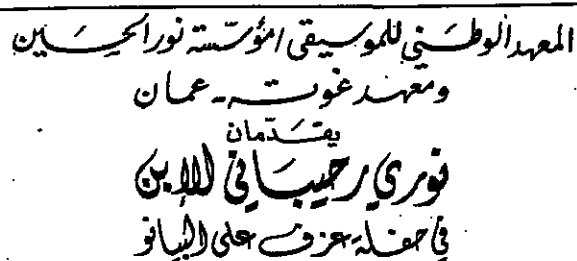 المعهد الوطني للموسيقى / مؤسسة نور الحسين
ومعهد غوته - عمان
يقدمان
نوري رحيباني الابن
في حفلة عزف على البيانو